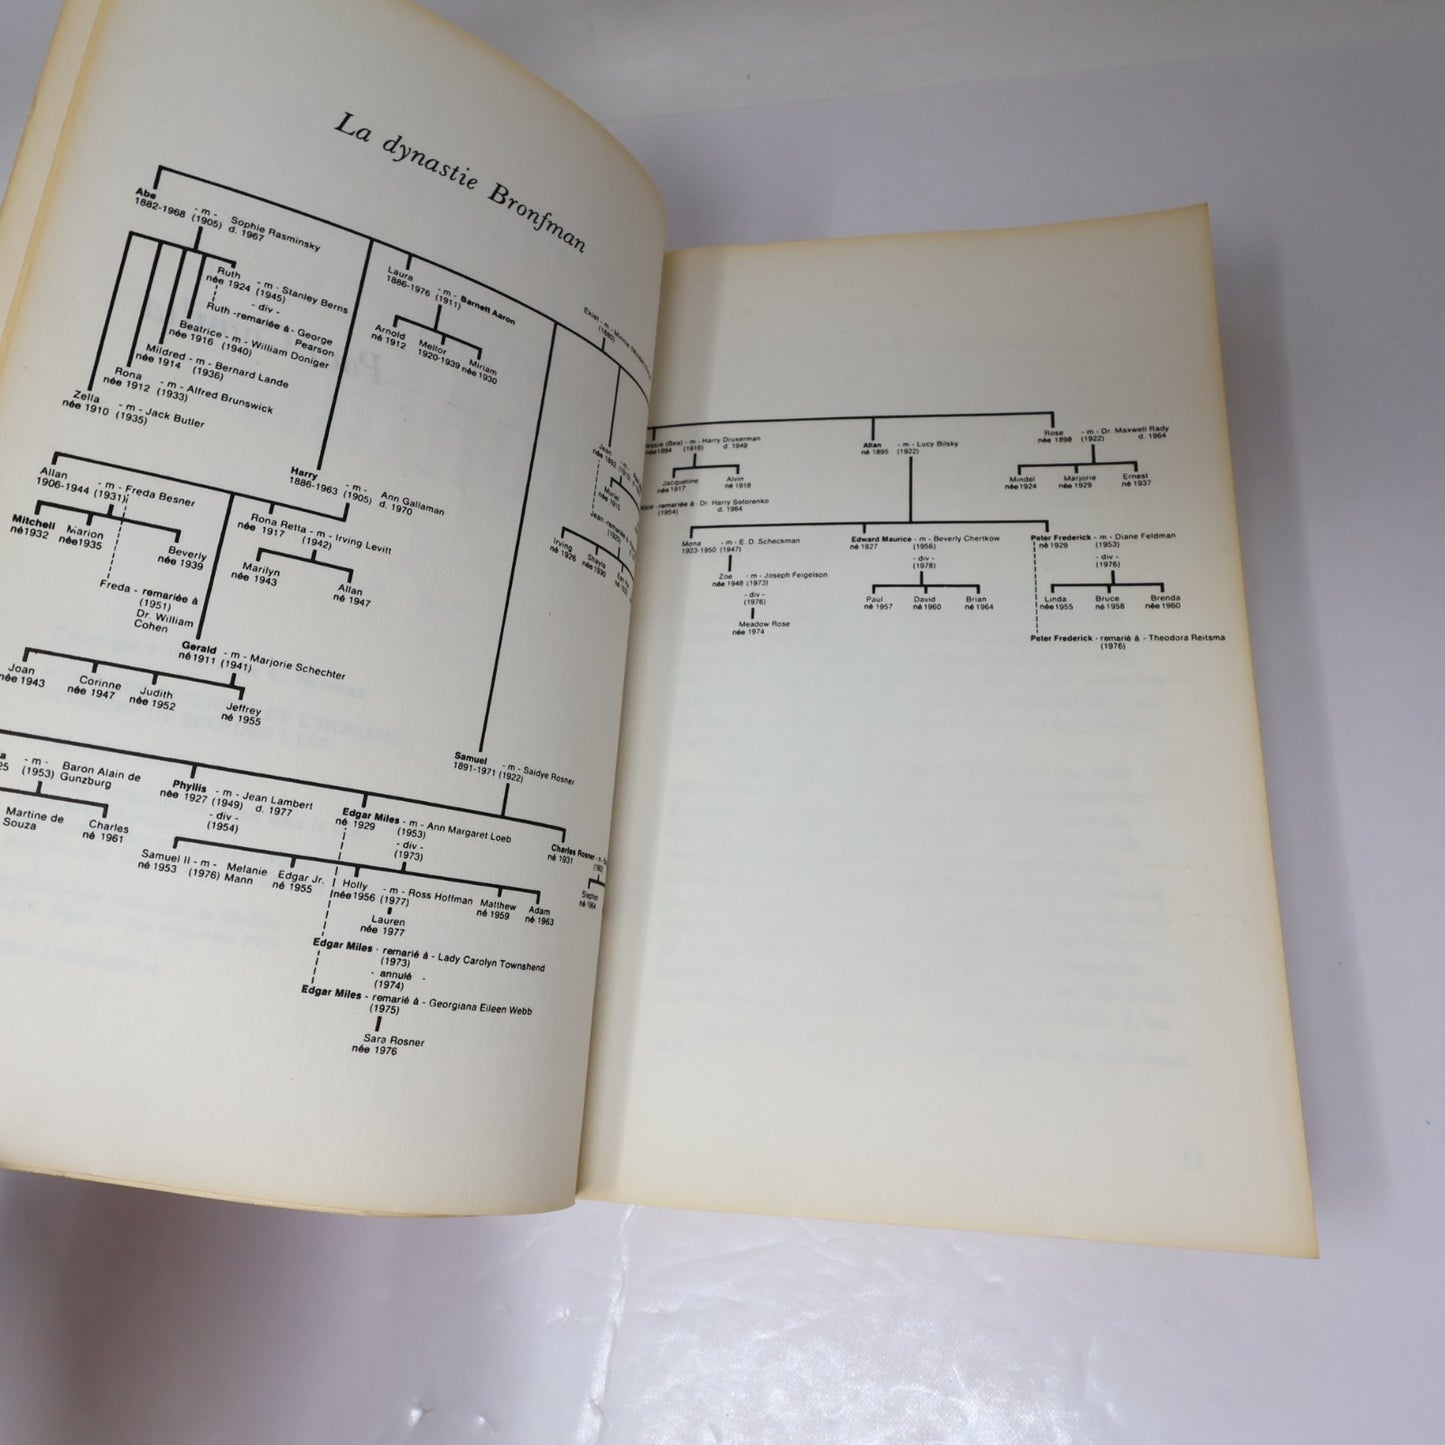 La dynastie Bronfman
Abe - m - Sophie Rasminsky
1882-1968 (1905) d. 1967
Ruth - m - Stanley Berns
née 1924 (1945)
- div -
Ruth -remariée à- George
Pearson
Beatrice - m - William Doniger
née 1916 (1940)
Mildred - m - Bernard Lande
née 1914 (1936)
Rona - m - Alfred Brunswick
née 1912 (1933)
Zella - m - Jack Butler
née 1910 (1935)
Laura - m - Barnett Aaron
1886-1976 (1911)
Arnold
né 1912
Mellor
1920-1939
Miriam
née 1930
Ekiel - m - Minnie
Harry - m - Ann Gallaman
1886-1963 (1905) d. 1970
Allan - m - Freda Besner
1906-1944 (1931)
Mitchell
né1932
Marion
née1935
Beverly
née 1939
Freda - remariée à
(1951)
Dr. William
Cohen
Rona Retta - m - Irving Levitt
née 1917 (1942)
Marilyn
née 1943
Allan
né 1947
Gerald - m - Marjorie Schechter
né 1911 (1941)
Joan
née 1943
Corinne
née 1947
Judith
née 1952
Jeffrey
né 1955
Jean
Muriel
née 1915
Jean -remariée à
Irving
né 1926
Shayla
née 1930
Samuel - m - Saidye Rosner
1891-1971 (1922)
- m - Baron Alain de
(1953) Gunzburg
Martine de
Souza
Charles
né 1961
Phyllis - m - Jean Lambert
née 1927 (1949) d. 1977
- div -
(1954)
Edgar Miles - m - Ann Margaret Loeb
né 1929 (1953)
- div -
(1973)
Charles Rosner - m -
né 1931
Stephen
né 1964
Samuel II - m - Melanie
né 1953 (1976) Mann
Edgar Jr.
né 1955
Holly - m - Ross Hoffman
née 1956 (1977)
Matthew
né 1959
Adam
né 1963
Lauren
née 1977
Edgar Miles - remarié à - Lady Carolyn Townshend
(1973)
- annulé -
(1974)
Edgar Miles - remarié à - Georgiana Eileen Webb
(1975)
Sara Rosner
née 1976
(Bea) - m - Harry Druxerman
née1894 (1916) d. 1949
Jacqueline
née 1917
Alvin
né 1918
-remariée à- Dr. Harry Sotorenko
(1954) d. 1964
Allan - m - Lucy Bilsky
né 1895 (1922)
Rose - m - Dr. Maxwell Rady
née 1898 (1922) d. 1964
Mindel
née 1924
Marjorie
née 1929
Ernest
né 1937
Mona - m - E. D. Scheckman
1923-1950 (1947)
Zoe - m - Joseph Feigelson
née 1948 (1973)
- div -
(1976)
Meadow Rose
née 1974
Edward Maurice - m - Beverly Chertkow
né 1927 (1956)
- div -
(1978)
Paul
né 1957
David
né 1960
Brian
né 1964
Peter Frederick - m - Diane Feldman
né 1929 (1953)
- div -
(1976)
Linda
née 1955
Bruce
né 1958
Brenda
née 1960
Peter Frederick - remarié à - Theodora Reitsma
(1976)